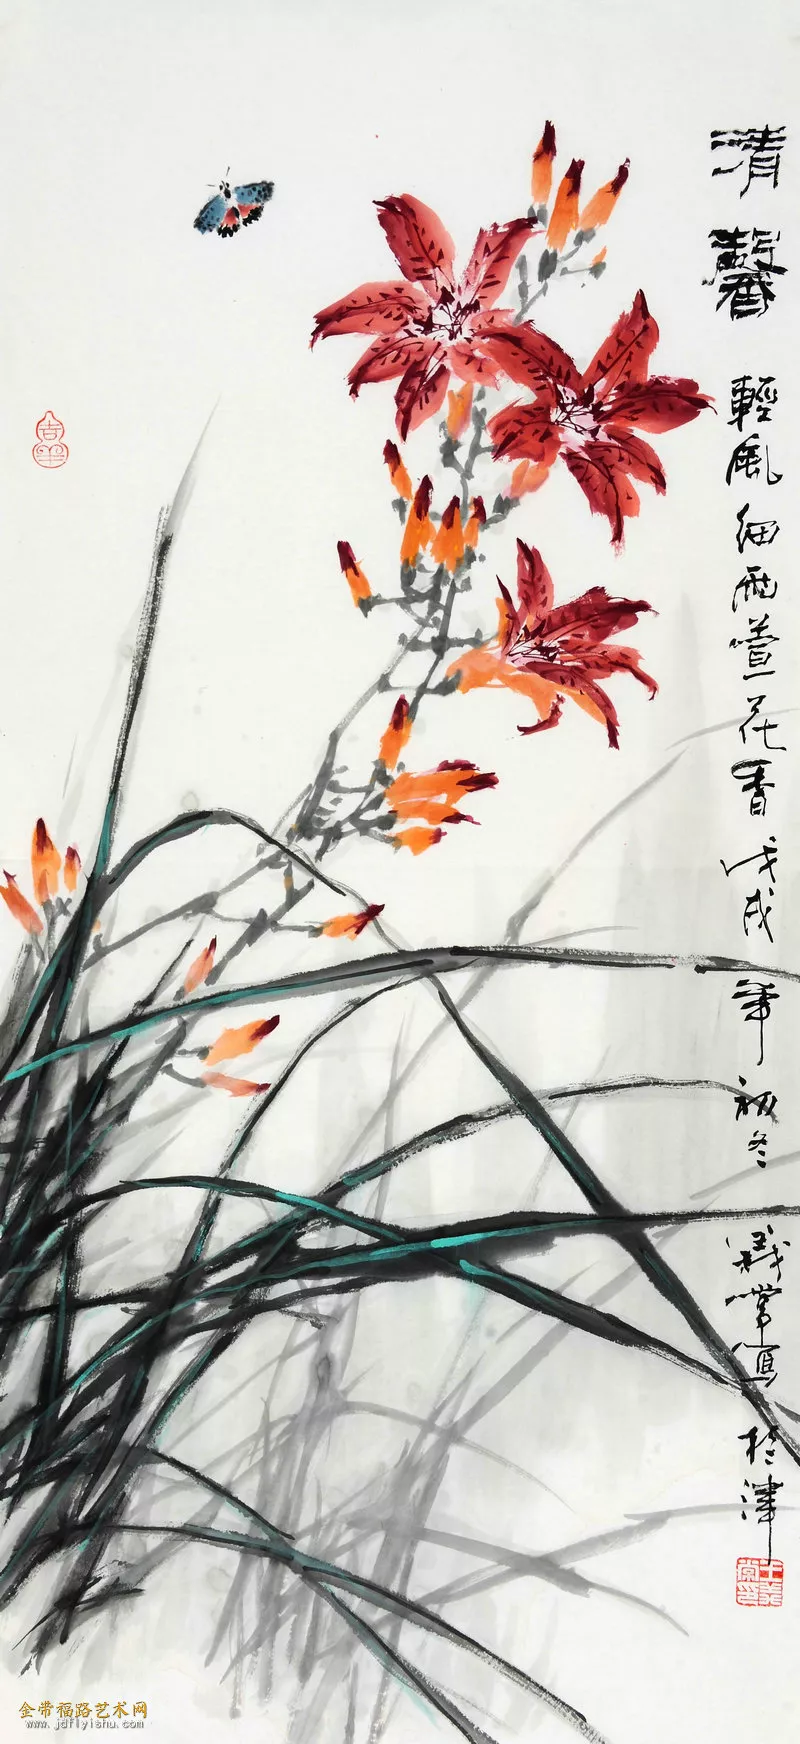 清馨
輕風細雨萱花香戊戌年初冬義常寫於津
吉羊
王義常印
金带福路艺术网
www.jdflyishu.com